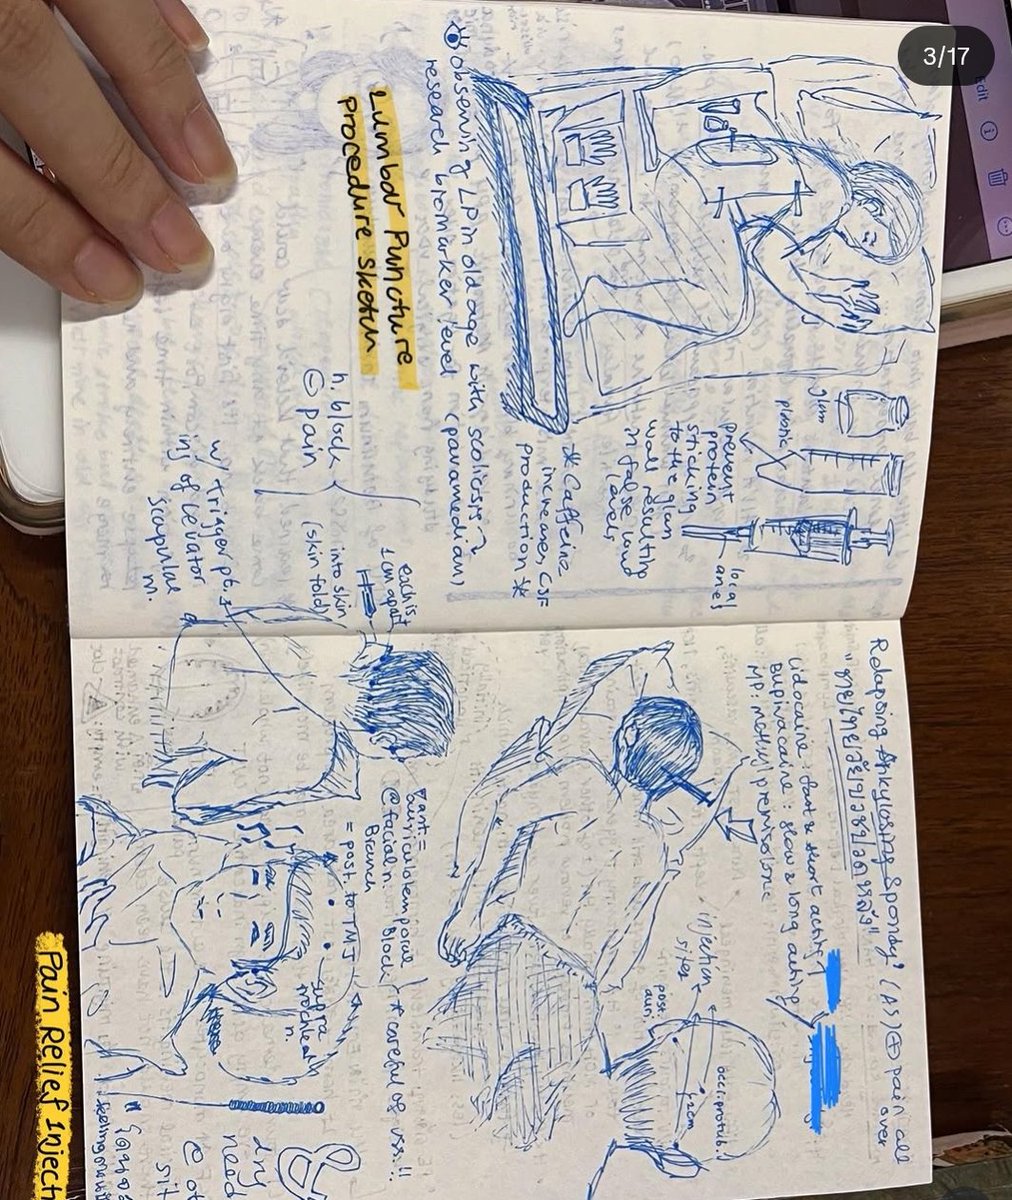 3/17
Edit
👁 Observing LP in old age with scoliosis?
research biomarker level (paramedian)
Lumbar Puncture
procedure sketch
glass
plastic
prevent
protein
sticking
to the glass
wall resulting
in false level
local
anes
* Caffeine
increases CSF
production *
n. block
pain
w/ trigger pt.
inj of levator
scapulae
m.
each is
1 cm apart
into skin
(skin fold)
Relapsing Ankylosing Spondy' (AS) ⊕ pain all over
Lidocaine : fast & short acting
Bupivacaine : slow & long acting
MP: methyl prednisolone
injection
sites
post.
auri.
occi. protub.
2cm
ant =
auriculotemporal
@ facial n.
Branch block
= post. to TMJ
* careful of vss.!!
supra
trochlear
n.
dry
need
Pain Relief Inject